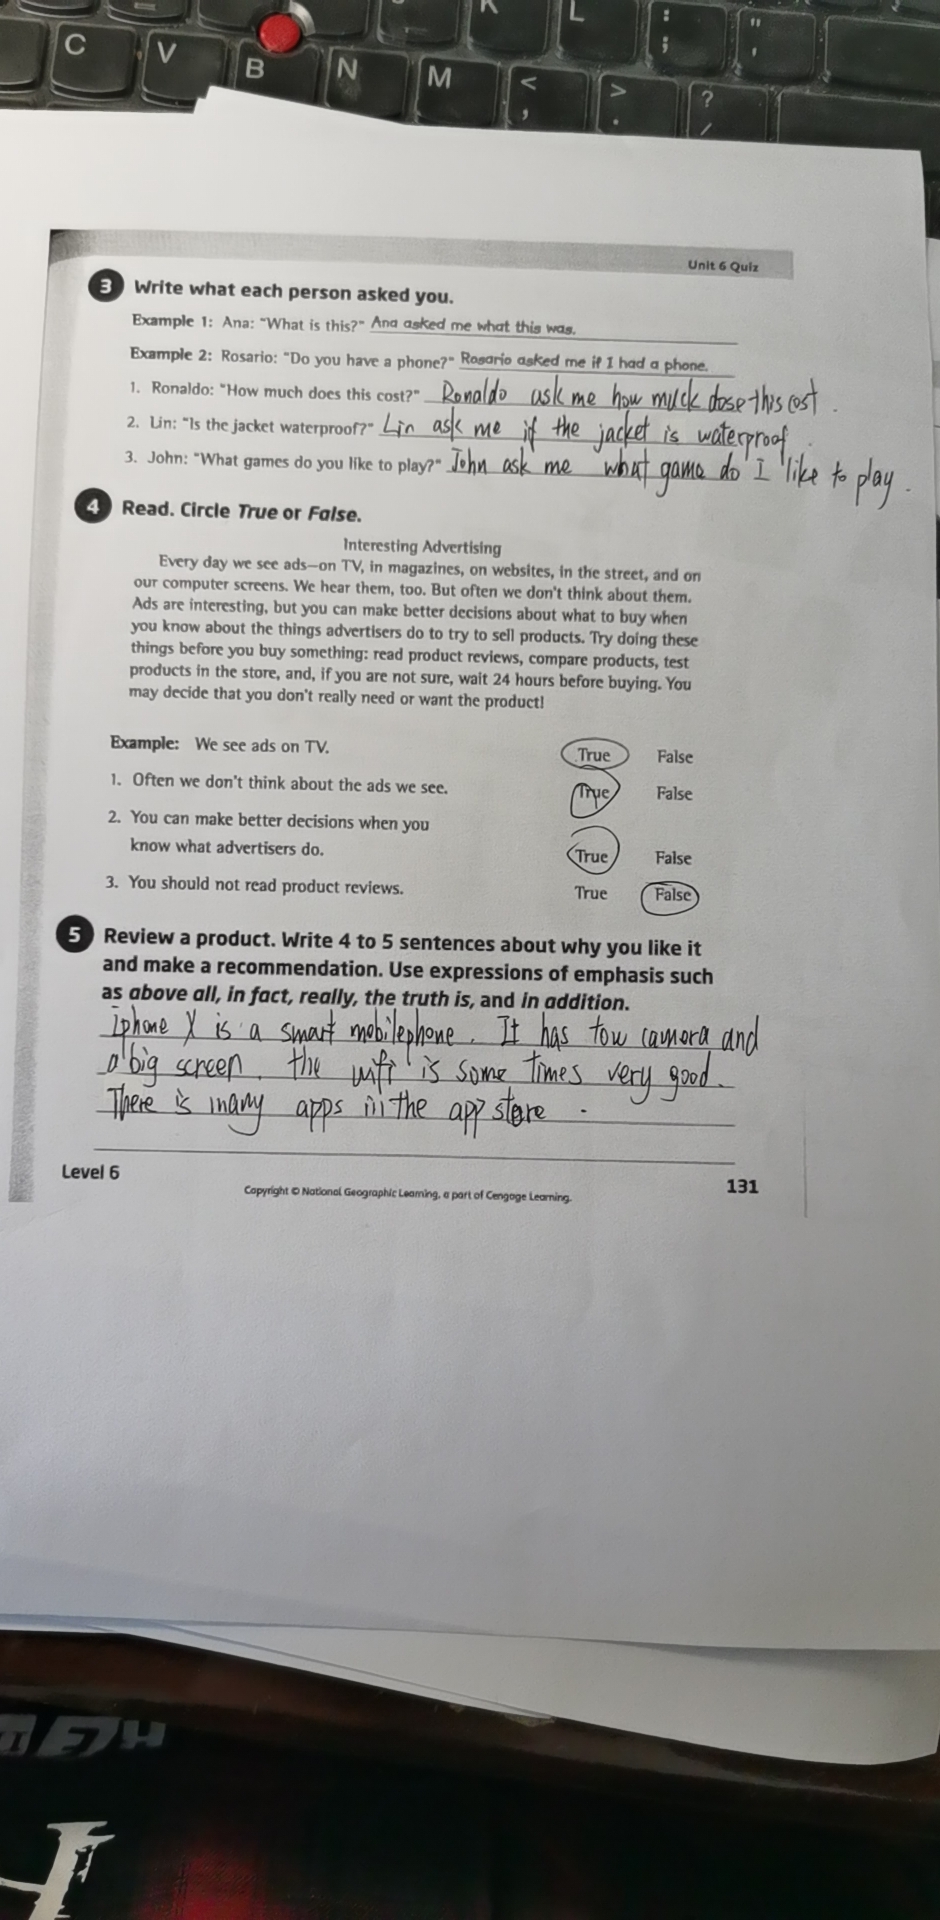 K L : ; " '
C V B N M < , > . ? /
Unit 6 Quiz
3 Write what each person asked you.
Example 1: Ana: "What is this?" Ana asked me what this was.
Example 2: Rosario: "Do you have a phone?" Rosario asked me if I had a phone.
1. Ronaldo: "How much does this cost?" Ronaldo ask me how muck dose this cost.
2. Lin: "Is the jacket waterproof?" Lin ask me if the jacket is waterproof.
3. John: "What games do you like to play?" John ask me what game do I like to play.
4 Read. Circle True or False.
Interesting Advertising
Every day we see ads—on TV, in magazines, on websites, in the street, and on
our computer screens. We hear them, too. But often we don't think about them.
Ads are interesting, but you can make better decisions about what to buy when
you know about the things advertisers do to try to sell products. Try doing these
things before you buy something: read product reviews, compare products, test
products in the store, and, if you are not sure, wait 24 hours before buying. You
may decide that you don't really need or want the product!
Example: We see ads on TV. True False
1. Often we don't think about the ads we see. True False
2. You can make better decisions when you
know what advertisers do. True False
3. You should not read product reviews. True False
5 Review a product. Write 4 to 5 sentences about why you like it
and make a recommendation. Use expressions of emphasis such
as above all, in fact, really, the truth is, and in addition.
Iphone X is a smart mobilephone. It has tow camera and
a big screen. the wifi is some times very good.
There is many apps in the app store.
Level 6
Copyright © National Geographic Learning, a part of Cengage Learning.
131